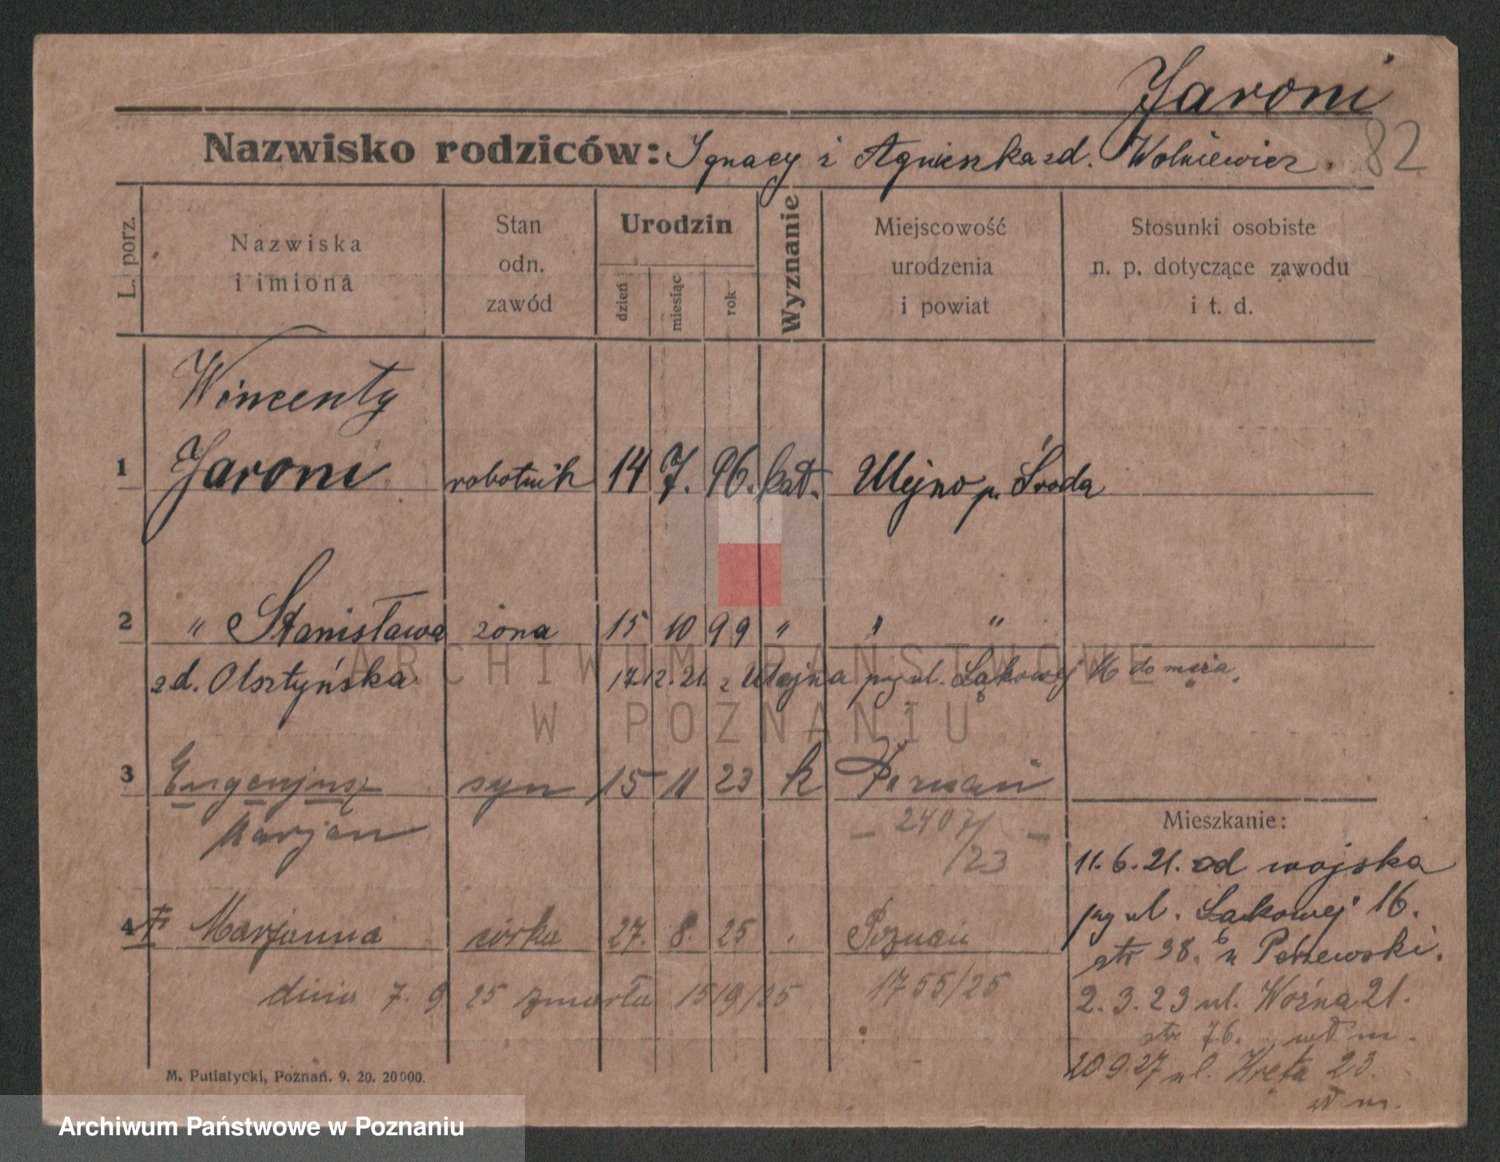 Jaroni
Nazwisko rodziców: Ignacy i Agnieszka zd. Wolniewicz.
82
L. porz.
Nazwiska
i imiona
Stan
odn.
zawód
Urodzin
dzień
miesiąc
rok
Wyznanie
Miejscowość
urodzenia
i powiat
Stosunki osobiste
n. p. dotyczące zawodu
i t. d.
Wincenty
1 Jaroni robotnik 14 7. 96. kat. Ulejno p. Środa
2 " Stanisława żona 15 10 99 " " "
zd. Olsztyńska 17.12.21. z Ulejna przy ul. Łąkowej 16 do męża.
3 Eugenjusz syn 15 11 23 k Poznań
Marjan — 2407/23 —
Mieszkanie:
11.6.21. od wojska
przy ul. Łąkowej 16.
str 38. u
4 Marjanna córka 27. 8. 25 Poznań
dnia 7. 9 25 zmarła 1519/25 1755/25
2. 3. 23 ul. Woźna 21.
str 76. wł m.
20 9.27 ul. Kręta 23.
wł m.
M. Putiatycki, Poznań. 9. 20. 20000.
ARCHIWUM PAŃSTWOWE
W POZNANIU
Archiwum Państwowe w Poznaniu